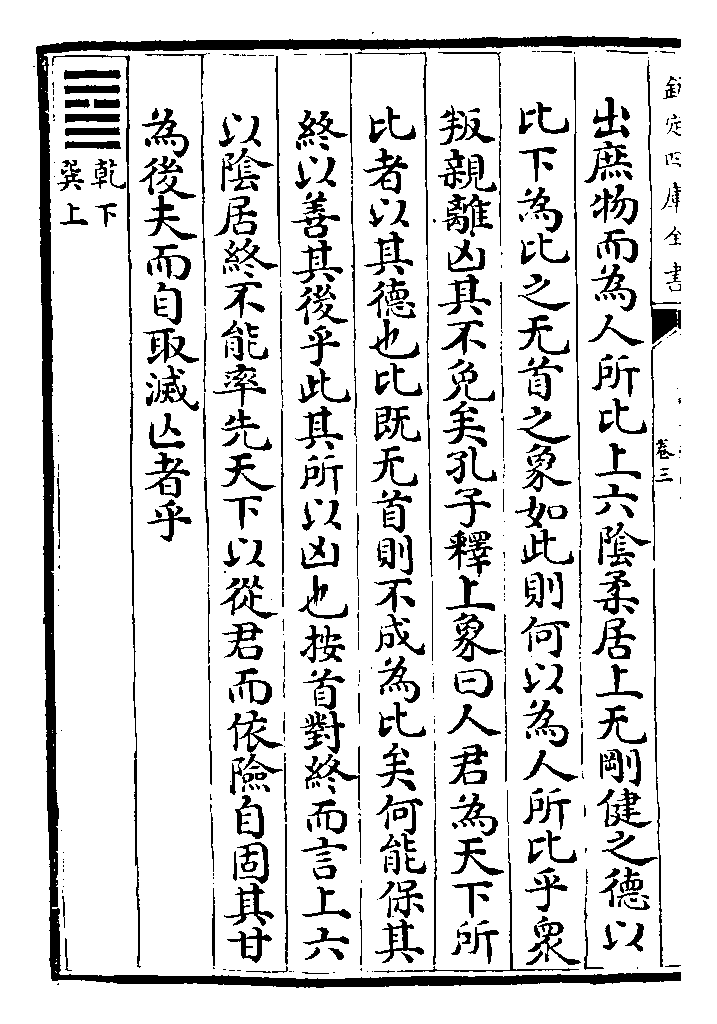 欽定四庫全書
卷三
出庶物而為人所比上六陰柔居上无剛健之德以
比下為比之无首之象如此則何以為人所比乎衆
叛親離凶其不免矣孔子釋上象曰人君為天下所
比者以其德也比既无首則不成為比矣何能保其
終以善其後乎此其所以凶也按首對終而言上六
以陰居終不能率先天下以從君而依險自固其甘
為後夫而自取滅亾者乎
乾下
巽上